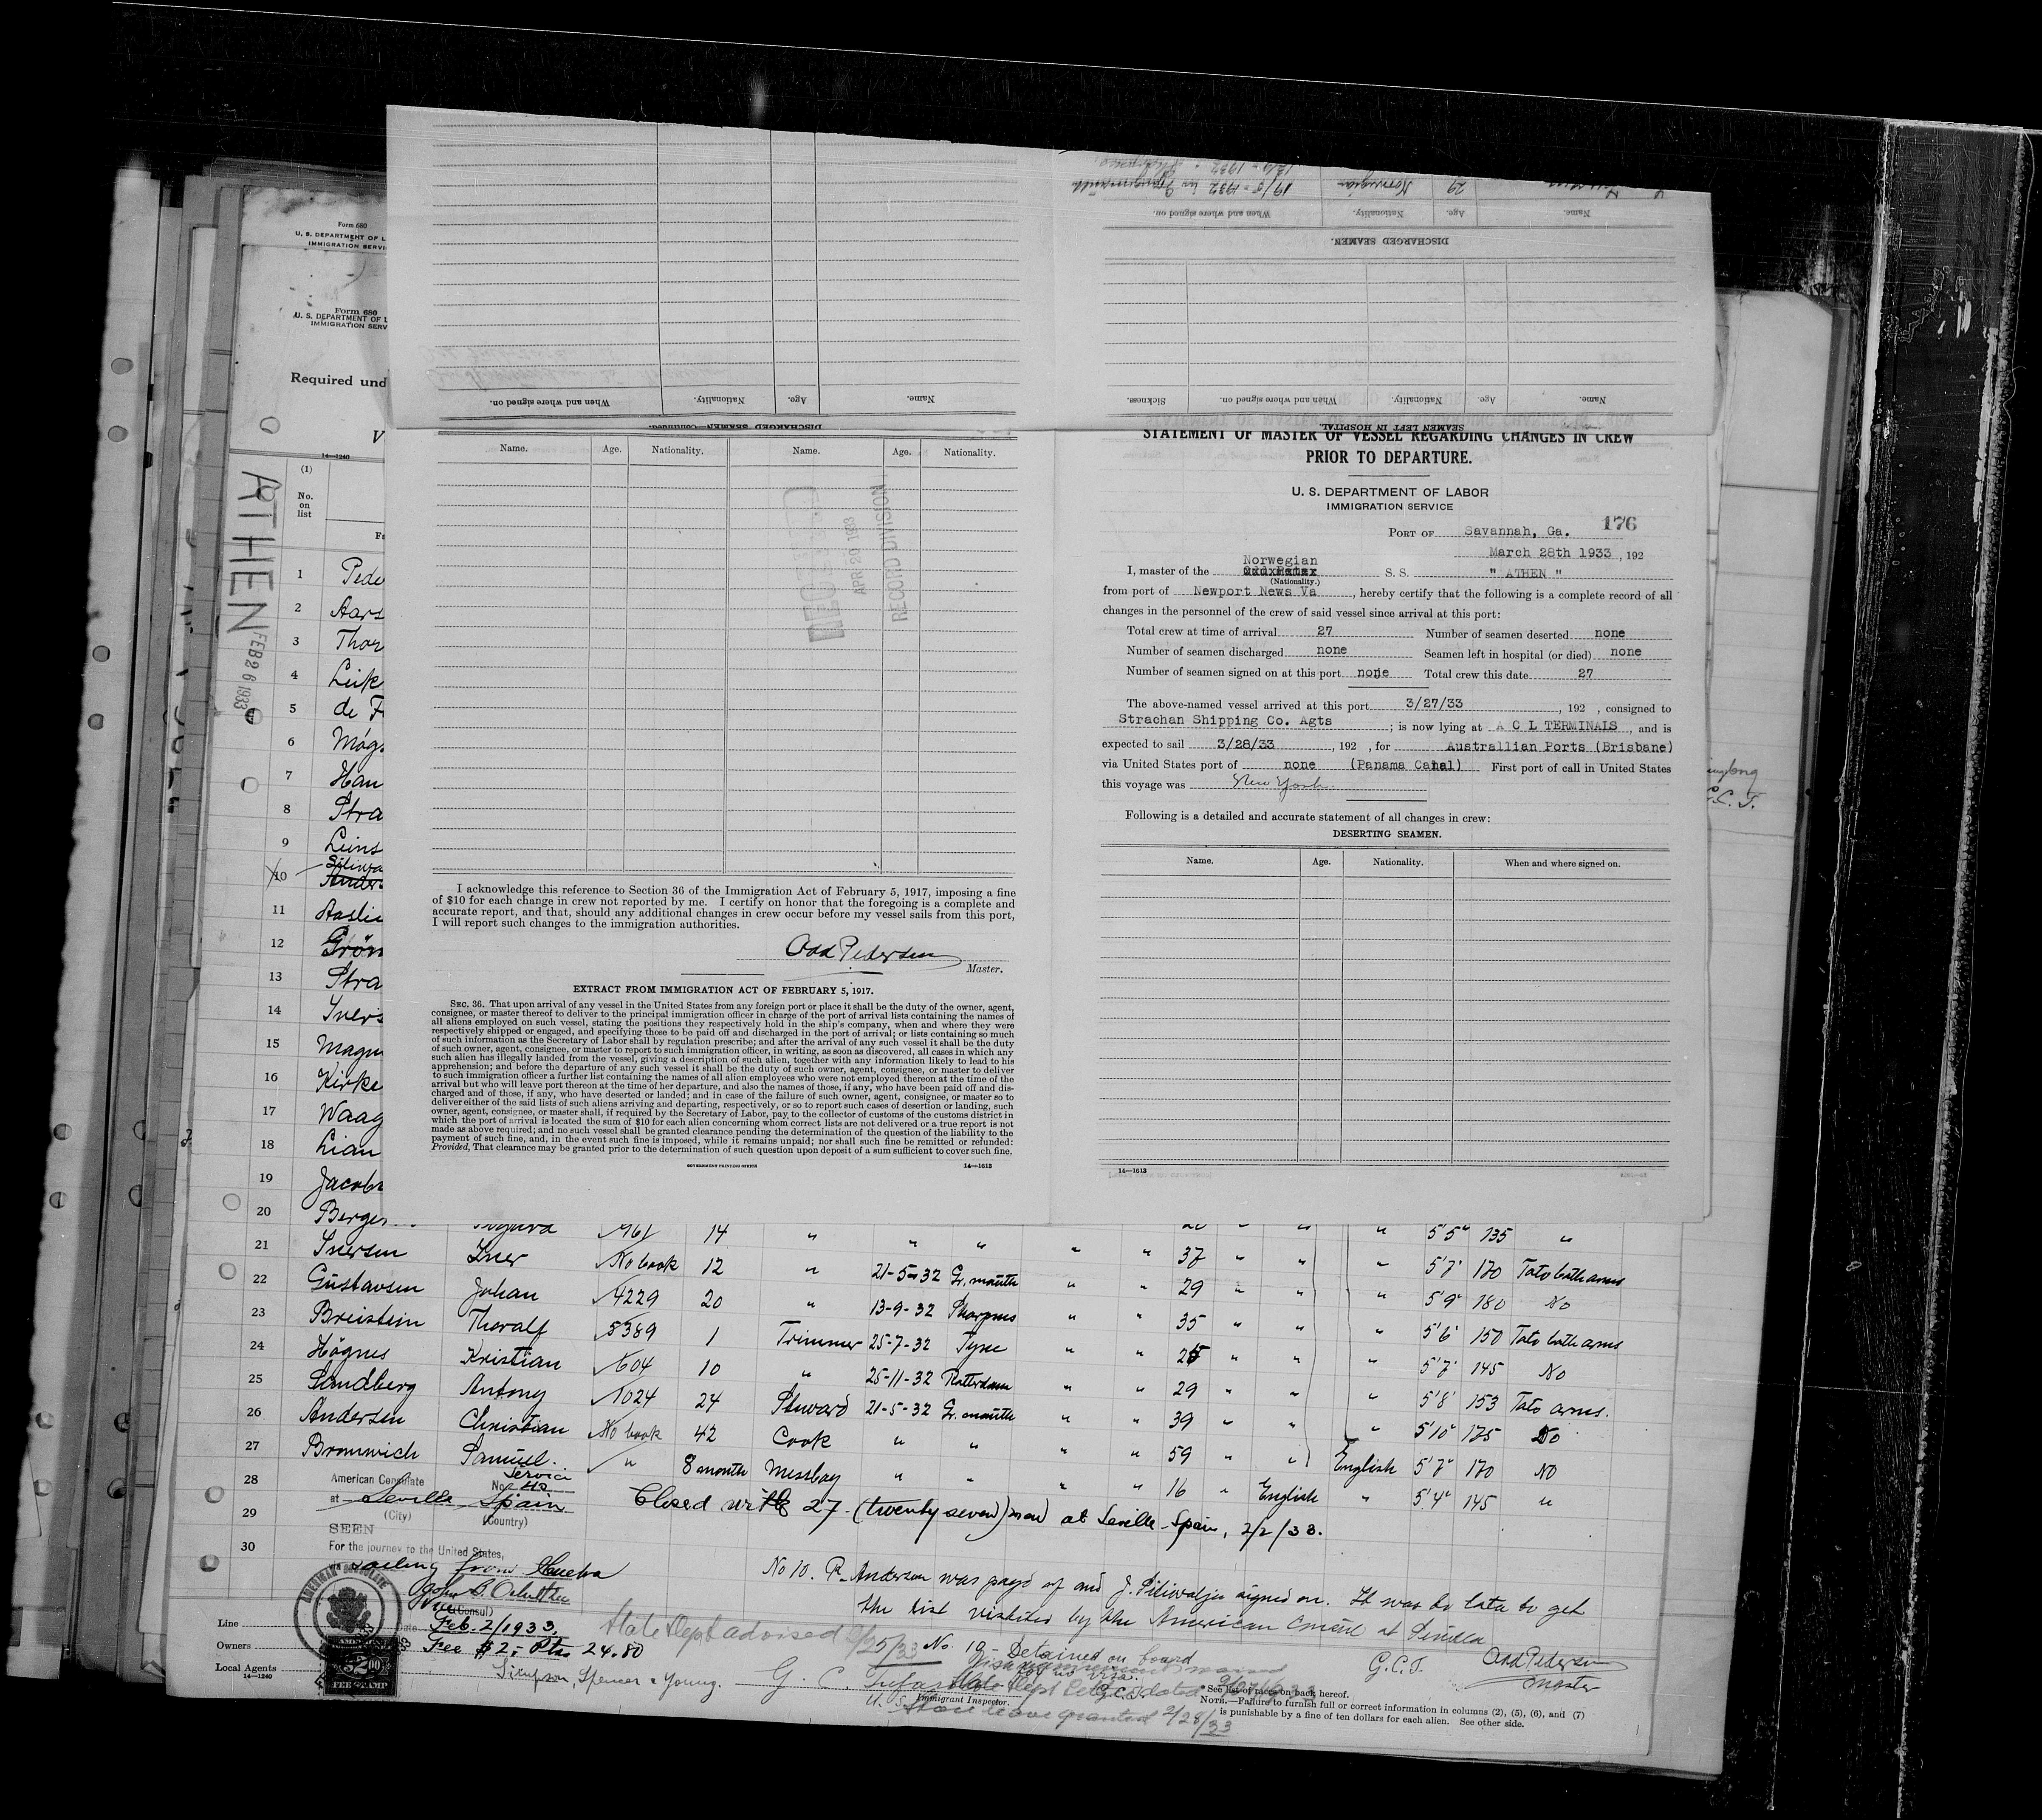 Form 680
U. S. DEPARTMENT OF L
IMMIGRATION SERVI
Form 680
U. S. DEPARTMENT OF L
IMMIGRATION SERV
Required und
V
14—1240
(1)
No.
on
list
ATHEN
FEB 26 1933
1 Pede
2 Aars
3 Thor
4 Leik
5 de F
6 Mög
7 Han
8 Stra
9 Leins
10 Siliva
Ander
11 Aaslie
12 Grön
13 Stra
14 Ivers
15 Magn
16 Kirke
17 Waag
18 Lian
19 Jacobs
20 Berges
DISCHARGED SEAMEN—Continued.
Name. Age. Nationality. When and where signed on.
DISCHARGED SEAMEN.
Name. Age. Nationality. When and where signed on.
29 Norwegian 19/5-1932 in
SEAMEN LEFT IN HOSPITAL.
Name. Age. Nationality. When and where signed on. Sickness.
Name. Age. Nationality. Name. Age. Nationality.
APR 20 1933
RECORD DIVISION
I acknowledge this reference to Section 36 of the Immigration Act of February 5, 1917, imposing a fine
of $10 for each change in crew not reported by me. I certify on honor that the foregoing is a complete and
accurate report, and that, should any additional changes in crew occur before my vessel sails from this port,
I will report such changes to the immigration authorities.
Odd Pedersen
Master.
EXTRACT FROM IMMIGRATION ACT OF FEBRUARY 5, 1917.
SEC. 36. That upon arrival of any vessel in the United States from any foreign port or place it shall be the duty of the owner, agent,
consignee, or master thereof to deliver to the principal immigration officer in charge of the port of arrival lists containing the names of
all aliens employed on such vessel, stating the positions they respectively hold in the ship's company, when and where they were
respectively shipped or engaged, and specifying those to be paid off and discharged in the port of arrival; or lists containing so much
of such information as the Secretary of Labor shall by regulation prescribe; and after the arrival of any such vessel it shall be the duty
of such owner, agent, consignee, or master to report to such immigration officer, in writing, as soon as discovered, all cases in which any
such alien has illegally landed from the vessel, giving a description of such alien, together with any information likely to lead to his
apprehension; and before the departure of any such vessel it shall be the duty of such owner, agent, consignee, or master to deliver
to such immigration officer a further list containing the names of all alien employees who were not employed thereon at the time of the
arrival but who will leave port thereon at the time of her departure, and also the names of those, if any, who have been paid off and dis-
charged and of those, if any, who have deserted or landed; and in case of the failure of such owner, agent, consignee, or master so to
deliver either of the said lists of such aliens arriving and departing, respectively, or so to report such cases of desertion or landing, such
owner, agent, consignee, or master shall, if required by the Secretary of Labor, pay to the collector of customs of the customs district in
which the port of arrival is located the sum of $10 for each alien concerning whom correct lists are not delivered or a true report is not
made as above required; and no such vessel shall be granted clearance pending the determination of the question of the liability to the
payment of such fine, and, in the event such fine is imposed, while it remains unpaid; nor shall such fine be remitted or refunded:
Provided, That clearance may be granted prior to the determination of such question upon deposit of a sum sufficient to cover such fine.
GOVERNMENT PRINTING OFFICE 14—1613
STATEMENT OF MASTER OF VESSEL REGARDING CHANGES IN CREW
PRIOR TO DEPARTURE.
U. S. DEPARTMENT OF LABOR
IMMIGRATION SERVICE
176
PORT OF Savannah, Ga.
March 28th 1933, 192
I, master of the Norwegian S. S. " ATHEN "
(Nationality.)
from port of Newport News Va, hereby certify that the following is a complete record of all
changes in the personnel of the crew of said vessel since arrival at this port:
Total crew at time of arrival 27 Number of seamen deserted none
Number of seamen discharged none Seamen left in hospital (or died) none
Number of seamen signed on at this port none Total crew this date 27
The above-named vessel arrived at this port 3/27/33, 192 , consigned to
Strachan Shipping Co. Agts; is now lying at A C L TERMINALS, and is
expected to sail 3/28/33, 192 , for Australlian Ports (Brisbane)
via United States port of none (Panama Canal) First port of call in United States
this voyage was New York.
Following is a detailed and accurate statement of all changes in crew:
DESERTING SEAMEN.
Name. Age. Nationality. When and where signed on.
14—1613
G.C.T.
961 14 " " " " " " " " 5'5" 135 "
21 Iversen Iver No book 12 " 21-5-32 Gr. mouth " " 37 " " " 5'7" 170 Tato both arms
22 Gustavsen Johan 4229 20 " 13-9-32 " " 29 " " " 5'9" 180 No
23 Breistein Thoralf 5389 1 Trimmer 25-7-32 Tyne " " 35 " " " 5'6" 150 Tato both arms
24 Högnes Kristian 604 10 " 25-11-32 Rotterdam " " 25 " " " 5'7" 145 No
25 Sandberg Antony 1024 24 Stuward 21-5-32 Gr. mouth " " 29 " " " 5'8" 153 Tato arms.
26 Andersen Christian No book 42 Cook " " " " 39 " " " 5'10" 175 No
27 Bromwich Samuel. " 8 month Messboy " " " " 59 " " English 5'7" 170 NO
28 16 " English " 5'4" 145 "
29
30
American Consulate
Service No. 40
at Seville Spain
(City) (Country)
SEEN
For the journey to the United States,
sailing from Huelva
(Consul)
AMERICAN CONSULATE
Date Feb. 2/1933.
Fee $2,- Pts. 24.80
$2.00
FEE STAMP
Closed with 27 (twenty seven) men at Seville - Spain, 2/2/33.
No 10. P. Andersen was payd of and J. Silivalja signed on. It was to late to get
the list visited by the American Consul at Sevilla
Odd Pedersen
Master
G.C.T.
State Dept advised 2/25/33 No. 19 - Detained on board
no visa.
G.C.T.
State Dept letter dated
Shore leave granted 2/28/33
Line
Owners
Local Agents Simpson, Spence & Young.
14—1240
U. S. Immigrant Inspector.
See list of races on back hereof.
NOTE.—Failure to furnish full or correct information in columns (2), (5), (6), and (7)
is punishable by a fine of ten dollars for each alien. See other side.